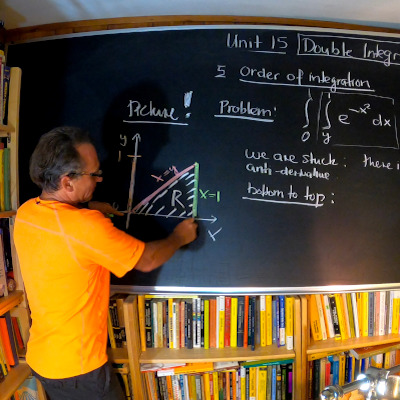 Unit 15 Double Integr
5 Order of integration
Picture!
Problem: ∫₀¹ ∫ᵧ¹ e^-x² dx
y
1
x=y
R
x=1
x
We are stuck: there i
anti-derivative
bottom to top: